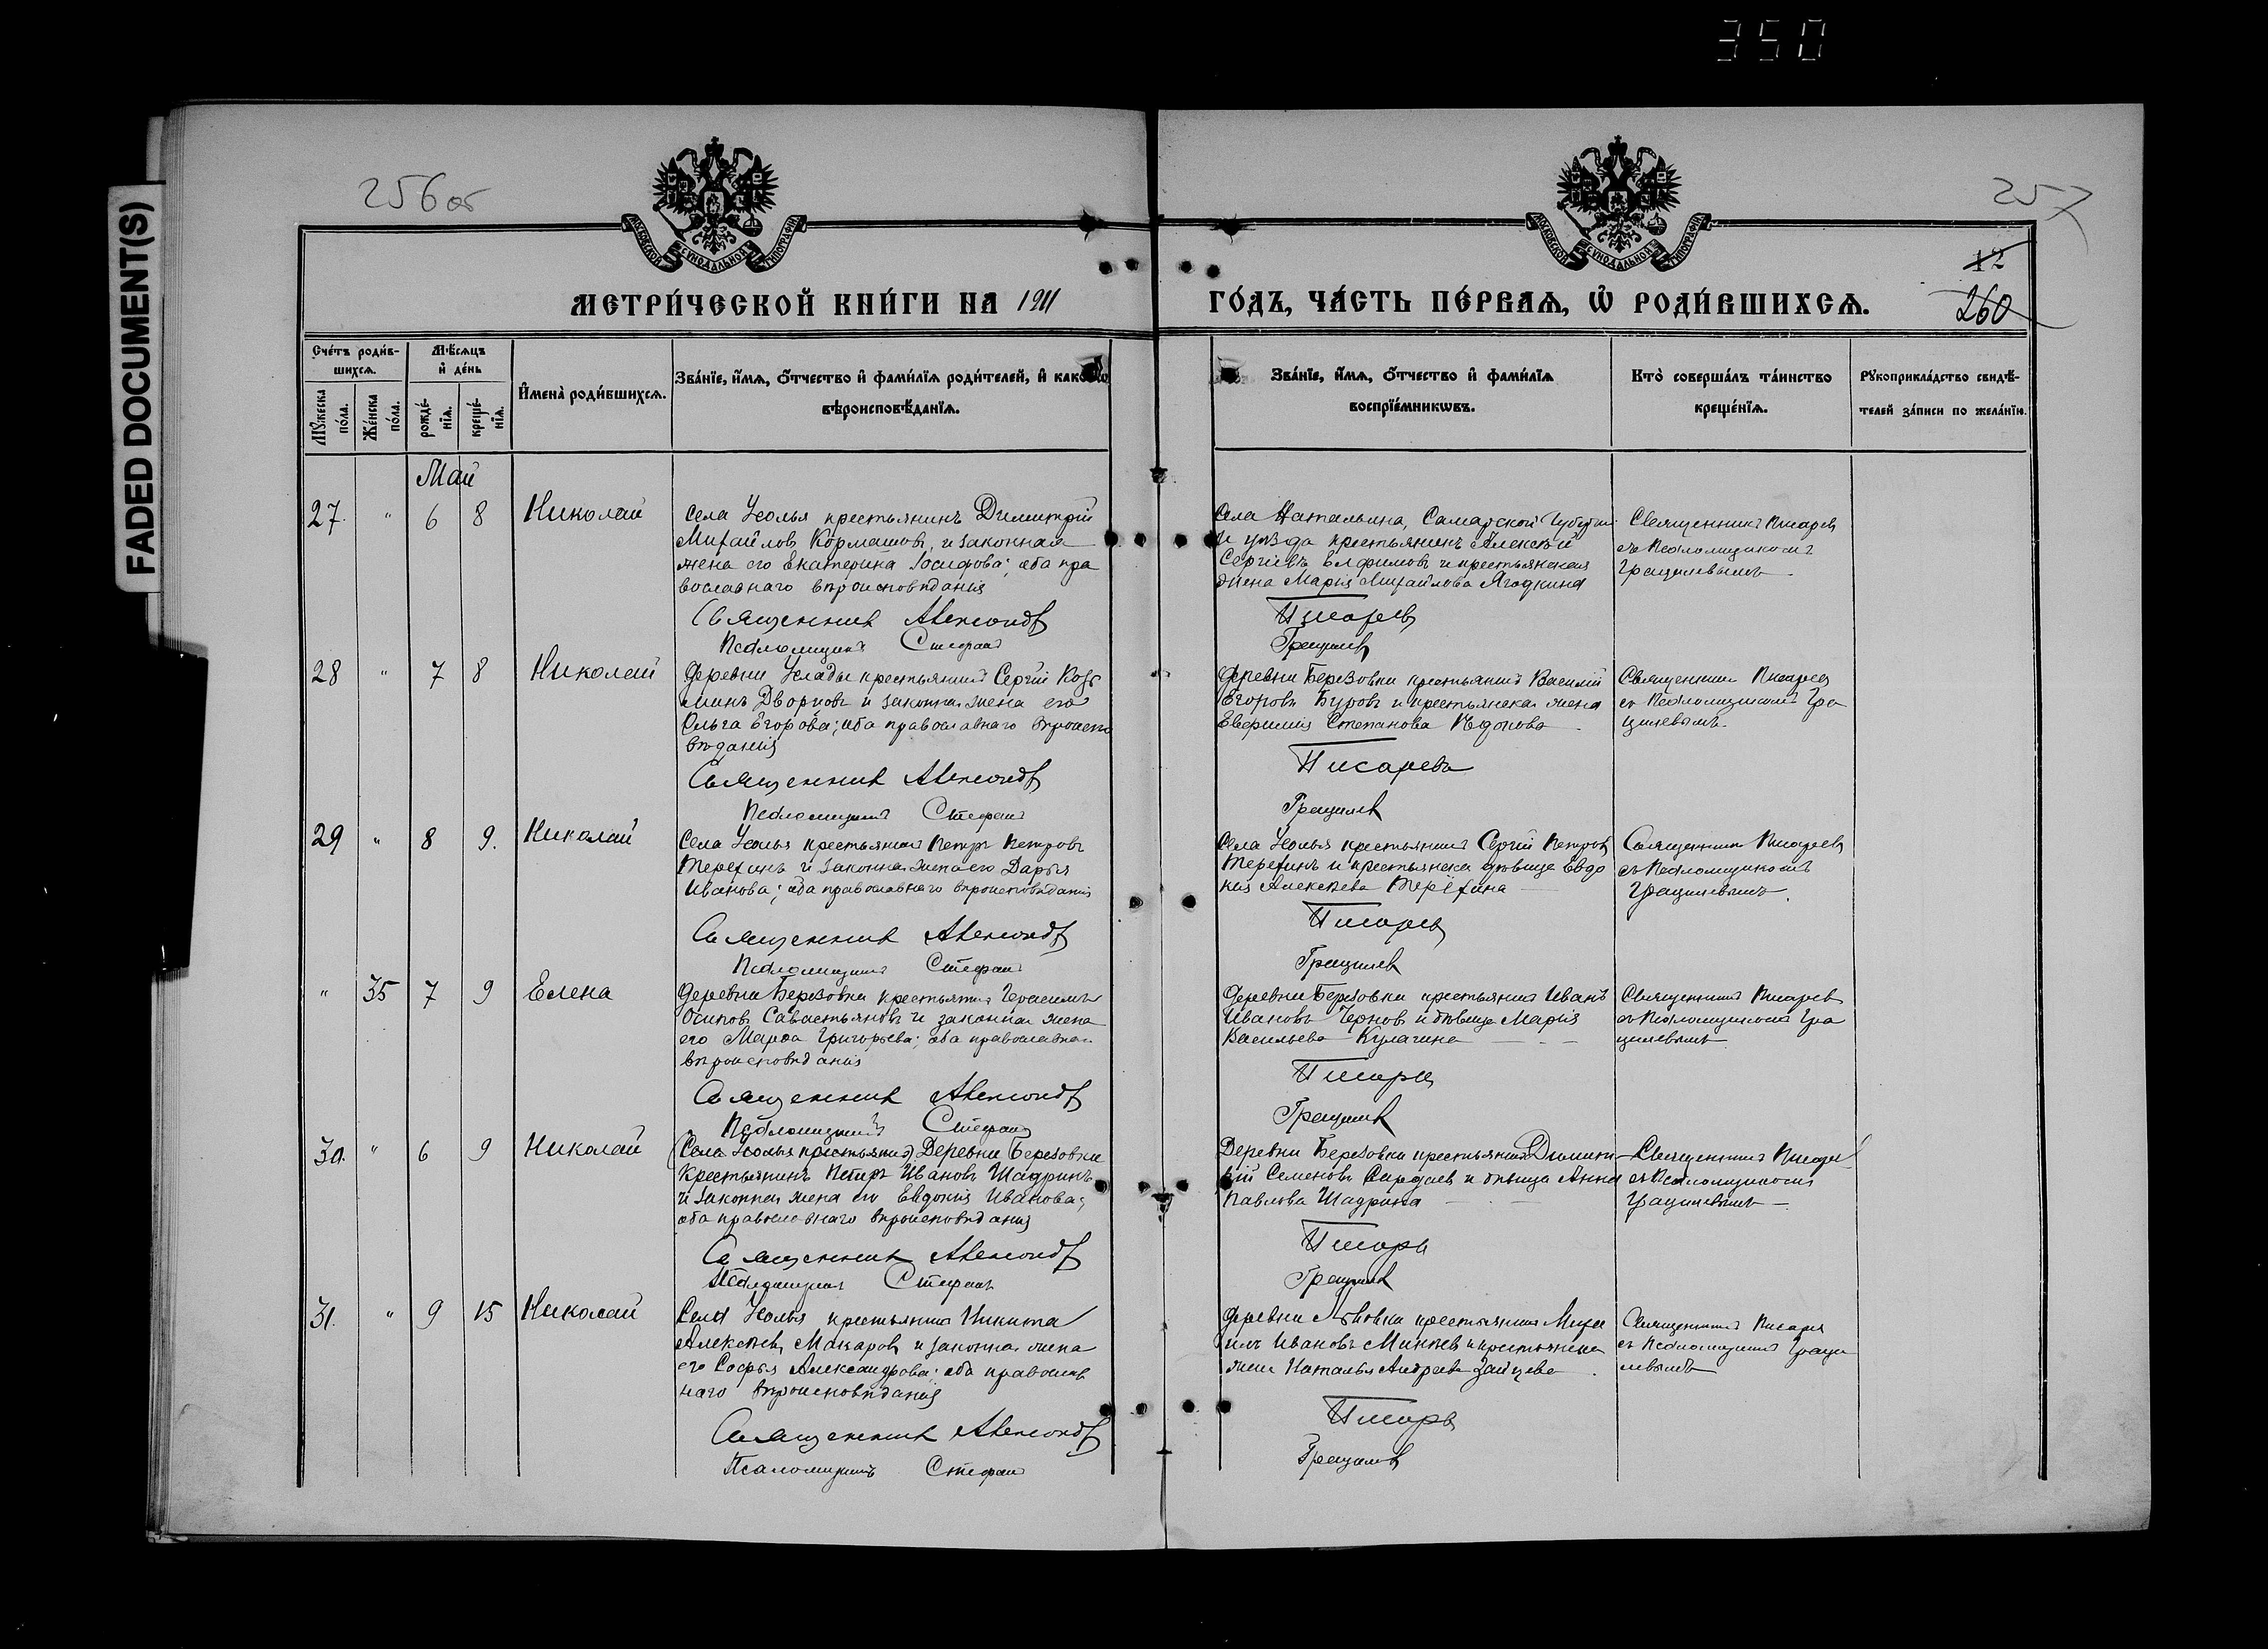 350
FADED DOCUMENT(S)
256 об
257
12
260
МОСКОВСКОЙ СѴНОДАЛЬНОЙ ТИПОГРАФІИ
МОСКОВСКОЙ СѴНОДАЛЬНОЙ ТИПОГРАФІИ
МЕТРИ́ЧЕСКОЙ КНИ́ГИ НА 1911
ГО́ДЪ, ЧА́СТЬ ПЕ́РВАѦ, Ѡ҆ РОДИ́ВШИХСѦ.
Сче́тъ роди́в-
шихсѧ.
Мꙋ́жеска
по́ла.
Же́нска
по́ла.
Мѣ́сѧцъ
и҆ де́нь
рожде́-
нїѧ.
креще́-
нїѧ.
И҆мена̀ роди́вшихсѧ.
Зва́нїе, и҆́мѧ, ѻ҆́тчество и҆ фами́лїѧ роди́телей, и҆ како́гѡ
вѣроисповѣ́данїѧ.
Зва́нїе, и҆́мѧ, ѻ҆́тчество и҆ фами́лїѧ
воспрїе́мникѡвъ.
Кто̀ соверша́лъ та́инство
креще́нїѧ.
Рꙋкоприкла́дство свидѣ́-
телей за́писи по жела́нїю.
Май
27. " 6 8 Николай
Села Усолья крестьянинъ Димитрій
Михайловъ Кормашовъ, и законная
жена его Екатерина Іосифова; оба пра
вославнаго вѣроисповѣданія
Священник Александр
Псаломщикъ Стефанъ
Села Натальина, Самарской Губерніи
и уѣзда крестьянинъ Алексѣй
Сергіевъ Елфимовъ и крестьянская
жена Марія Михайлова Ягодкина
Писаревъ
Грацилевъ
Священникъ Писаревъ
съ Псаломщикомъ
Грацилевымъ
28 " 7 8 Николай
Деревни Услады крестьянинъ Сергій Козь
минъ Дворновъ и законная жена его
Ольга Егорова; оба православнаго вѣроиспо
вѣданія
Священник Александр
Псаломщикъ Стефанъ
Деревни Березовки крестьянинъ Василій
Егоровъ Буровъ и крестьянская жена
Евфимія Степанова
Писаревъ
Грацилевъ
Священникъ Писаревъ
съ Псаломщикомъ Гра
цилевымъ
29 " 8 9. Николай
Села Усолья крестьянинъ Петръ Петровъ
Терехинъ и законная жена его Дарья
Иванова; оба православнаго вѣроисповѣданія
Священник Александр
Псаломщикъ Стефанъ
Села Усолья крестьянинъ Сергій Петровъ
Терехинъ и крестьянска дѣвица Евдо
кія Алексѣева Терехина
Писаревъ
Грацилевъ
Священникъ Писаревъ
съ Псаломщикомъ
Грацилевымъ.
" 35 7 9 Елена
Деревни Березовки крестьянинъ Герасимъ
Осиповъ Савастьяновъ и законная жена
его Марѳа Григорьева; оба православнаго
вѣроисповѣданія
Священник Александр
Псаломщикъ Стефанъ
Деревни Березовки крестьянинъ Иванъ
Ивановъ Черновъ и дѣвица Марія
Васильева Кулагина
Писаревъ
Грацилевъ
Священникъ Писаревъ
съ Псаломщикомъ Гра
цилевымъ
30. " 6 9 Николай
(Села Усолья крестьянинъ) Деревни Березовки
Крестьянинъ Петръ Ивановъ Шадринъ
и законная жена его Евдокія Иванова;
оба православнаго вѣроисповѣданія
Священник Александр
Псаломщикъ Стефанъ
Деревни Березовки крестьянинъ Димит-
рій Семеновъ и дѣвица Анна
Павлова Шадрина
Писаревъ
Грацилевъ
Священникъ Писаревъ
съ Псаломщикомъ
Грацилевымъ
31. " 9 15 Николай
Села Усолья крестьянинъ Никита
Алексѣевъ Макаровъ и законная жена
его Софья Александрова; оба православ
наго вѣроисповѣданія
Священник Александр
Псаломщикъ Стефанъ
Деревни Львовки крестьянинъ Миха
илъ Ивановъ Минѣев и крестьянская
жена Наталья Андреева Зайцева
Писаревъ
Грацилевъ
Священникъ Писаревъ
съ Псаломщикомъ Граци
левымъ